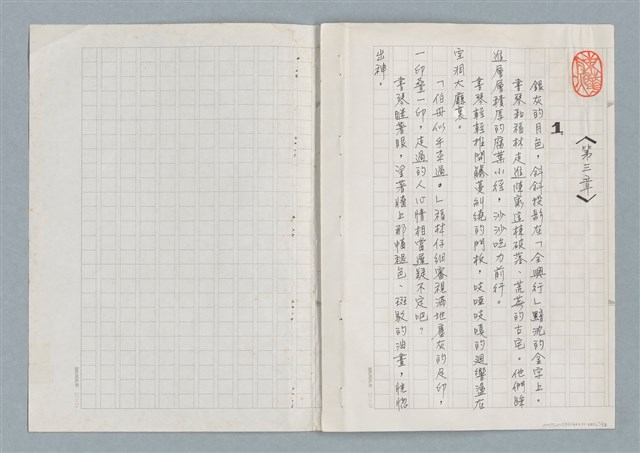 〈第三章〉
1
銀灰的月色，斜斜投影在「全興行」黯沈的金字上。
書琴和福林走進陳家這棟破落、荒蕪的古宅。他們踩
進層層積厚的腐葉小徑，沙沙吃力前行。
書琴輕輕推開藤蔓糾繞的門板，吱啞吱嘎的迴響盪在
空洞大廳裏。
「伯母似乎來過。」福林仔細審視滿地塵灰的足印，
一印疊一印，走過的人心情相當遲疑不定吧？
書琴瞇著眼，望著牆上那幅褪色、斑駁的油畫，恍惚
出神。